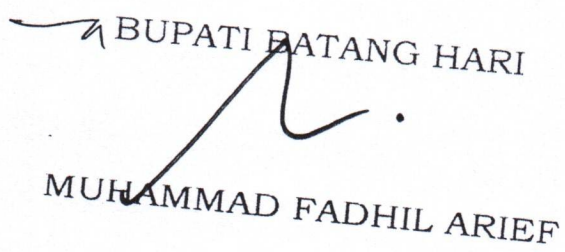 BUPATI BATANG HARI
MUHAMMAD FADHIL ARIEF